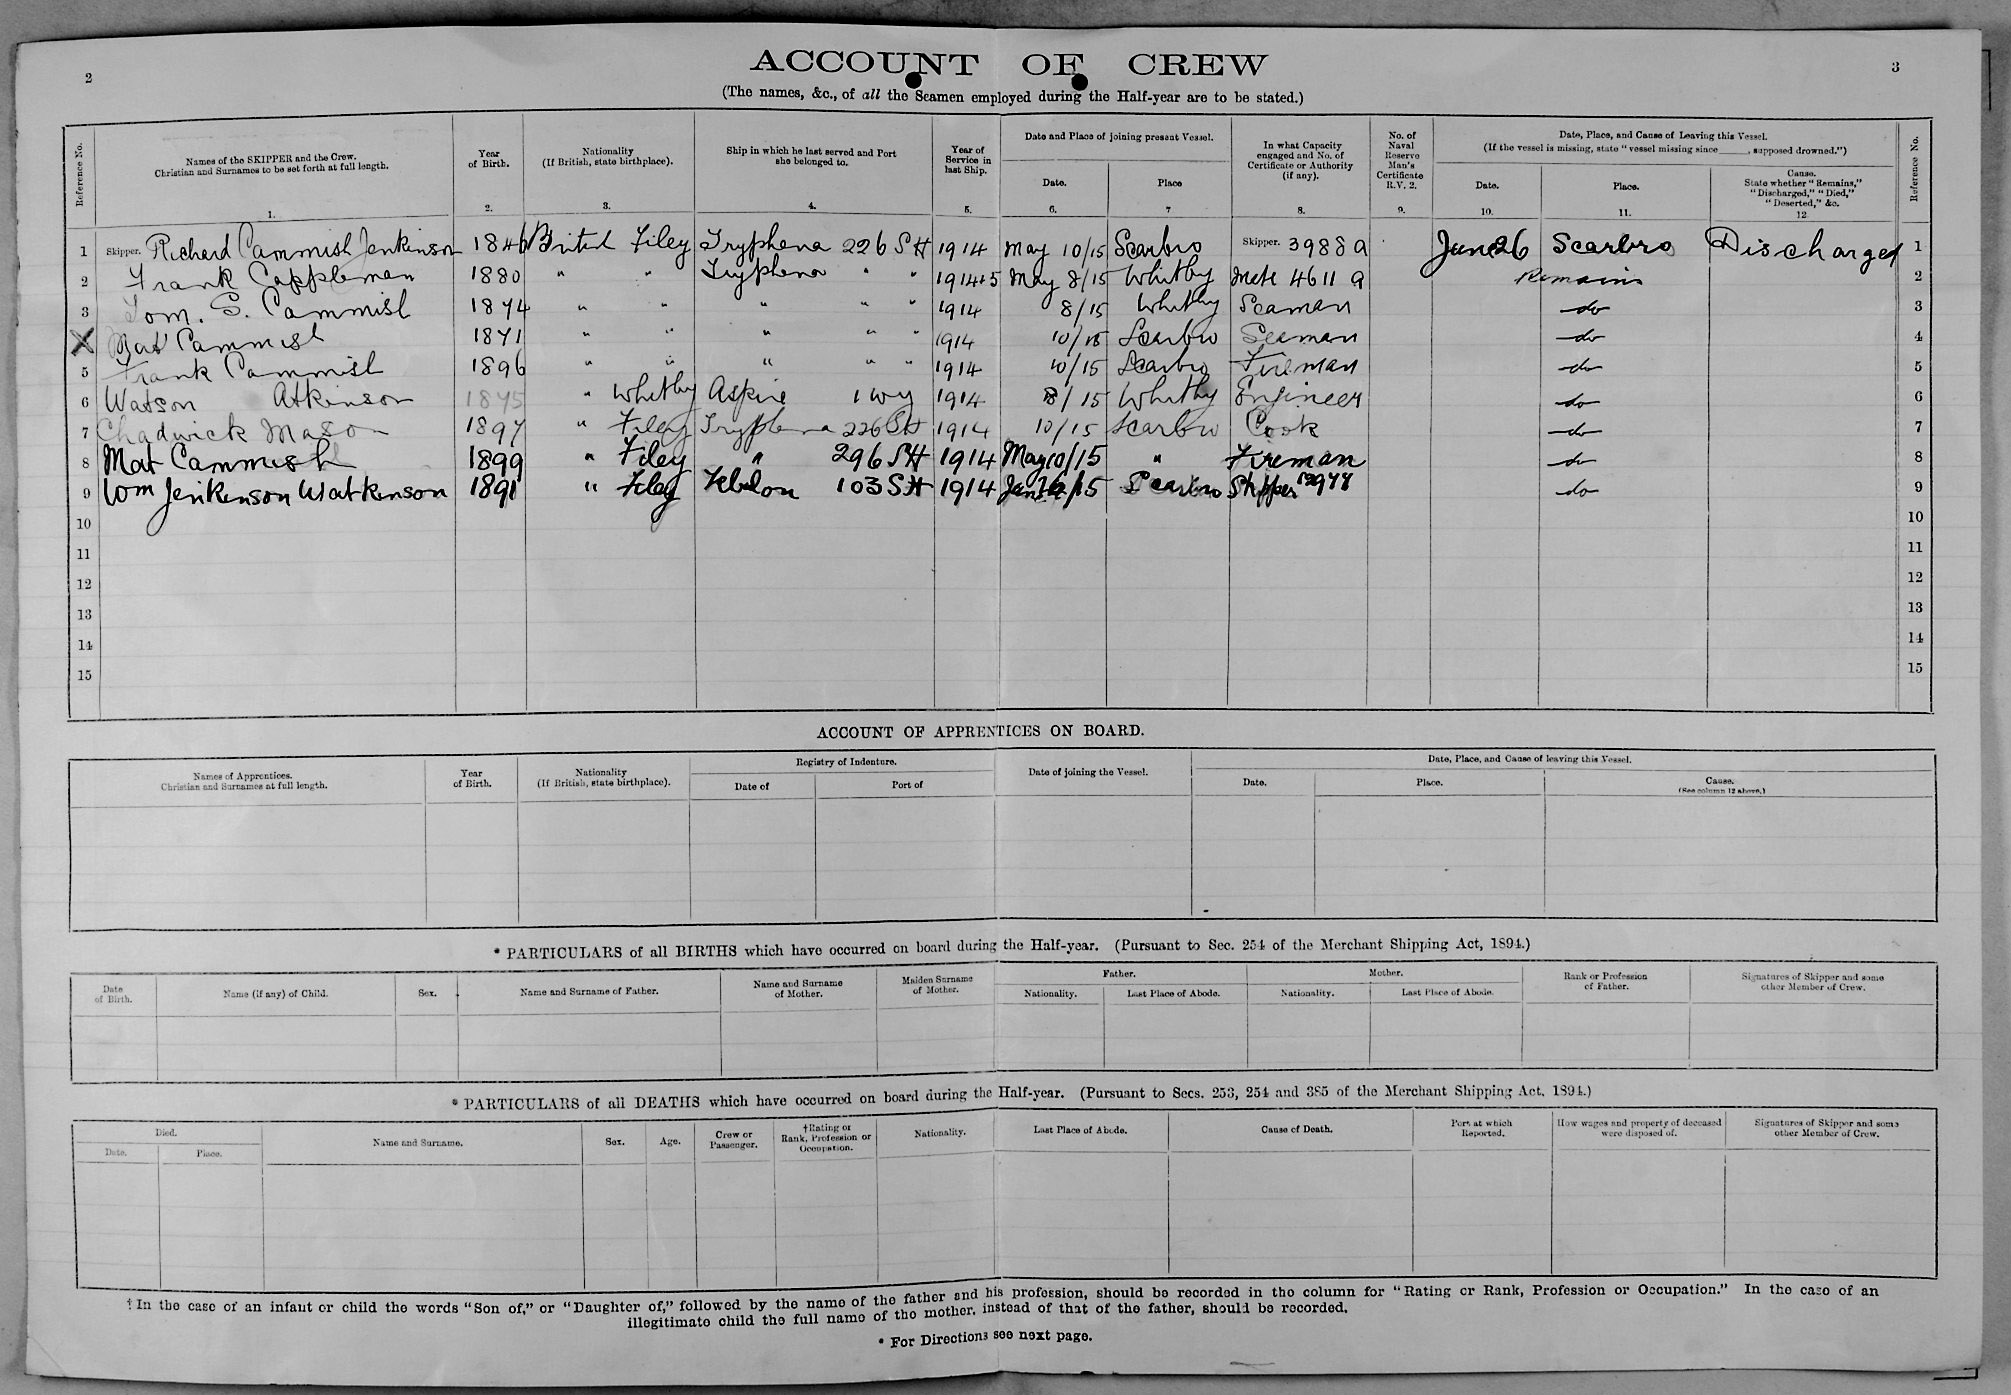 2
ACCOUNT OF CREW
3
(The names, &c., of all the Seamen employed during the Half-year are to be stated.)
Reference No.
Names of the SKIPPER and the Crew. Christian and Surnames to be set forth at full length.
1.
Year of Birth.
2.
Nationality (If British, state birthplace).
3.
Ship in which he last served and Port she belonged to.
4.
Year of Service in last Ship.
5.
Date and Place of joining present Vessel.
Date.
6.
Place
7
In what Capacity engaged and No. of Certificate or Authority (if any).
8.
No. of Naval Reserve Man's Certificate R.V. 2.
9.
Date, Place, and Cause of Leaving this Vessel.
(If the vessel is missing, state "vessel missing since______, supposed drowned.")
Date.
10.
Place.
11.
Cause. State whether "Remains," "Discharged," "Died," "Deserted," &c.
12
Reference No.
1 Skipper. Richard Cammish Jenkinson 1846 British Filey Tryphena 226 SH 1914 May 10/15 Scarbro Skipper. 3988 a June 26 Scarbro Discharged 1
2 Frank Cappleman 1880 " " Tryphena " " 1914+5 May 8/15 Whitby Mate 4611 a Remains 2
3 Tom. G. Cammish 1874 " " " " " 1914 8/15 Whitby Seaman do 3
X Mat Cammish 1871 " " " " " 1914 10/15 Scarbro Seaman do 4
5 Frank Cammish 1896 " " " " " 1914 10/15 Scarbro Fireman do 5
6 Watson Atkinson 1875 " Whitby Aspire 1 wy 1914 8/15 Whitby Engineer do 6
7 Chadwick Mason 1897 " Filey Tryphena 226 SH 1914 10/15 Scarbro Cook do 7
8 Mat Cammish 1899 " Filey " 296 SH 1914 May 10/15 " Fireman do 8
9 Tom Jenkinson Watkinson 1891 " Filey 103 SH 1914 Scarbro Skipper do 9
10 10
11 11
12 12
13 13
14 14
15 15
ACCOUNT OF APPRENTICES ON BOARD.
Names of Apprentices. Christian and Surnames at full length.
Year of Birth.
Nationality (If British, state birthplace).
Registry of Indenture.
Date of
Port of
Date of joining the Vessel.
Date, Place, and Cause of leaving this Vessel.
Date.
Place.
Cause. (See column 12 above.)
* PARTICULARS of all BIRTHS which have occurred on board during the Half-year. (Pursuant to Sec. 254 of the Merchant Shipping Act, 1894.)
Date of Birth.
Name (if any) of Child.
Sex.
Name and Surname of Father.
Name and Surname of Mother.
Maiden Surname of Mother.
Father.
Nationality.
Last Place of Abode.
Mother.
Nationality.
Last Place of Abode.
Rank or Profession of Father.
Signatures of Skipper and some other Member of Crew.
* PARTICULARS of all DEATHS which have occurred on board during the Half-year. (Pursuant to Secs. 253, 254 and 385 of the Merchant Shipping Act, 1894.)
Died.
Date.
Place.
Name and Surname.
Sex.
Age.
Crew or Passenger.
†Rating or Rank, Profession or Occupation.
Nationality.
Last Place of Abode.
Cause of Death.
Port at which Reported.
How wages and property of deceased were disposed of.
Signatures of Skipper and some other Member of Crew.
† In the case of an infant or child the words "Son of," or "Daughter of," followed by the name of the father and his profession, should be recorded in the column for "Rating or Rank, Profession or Occupation." In the case of an
illegitimate child the full name of the mother, instead of that of the father, should be recorded.
* For Directions see next page.